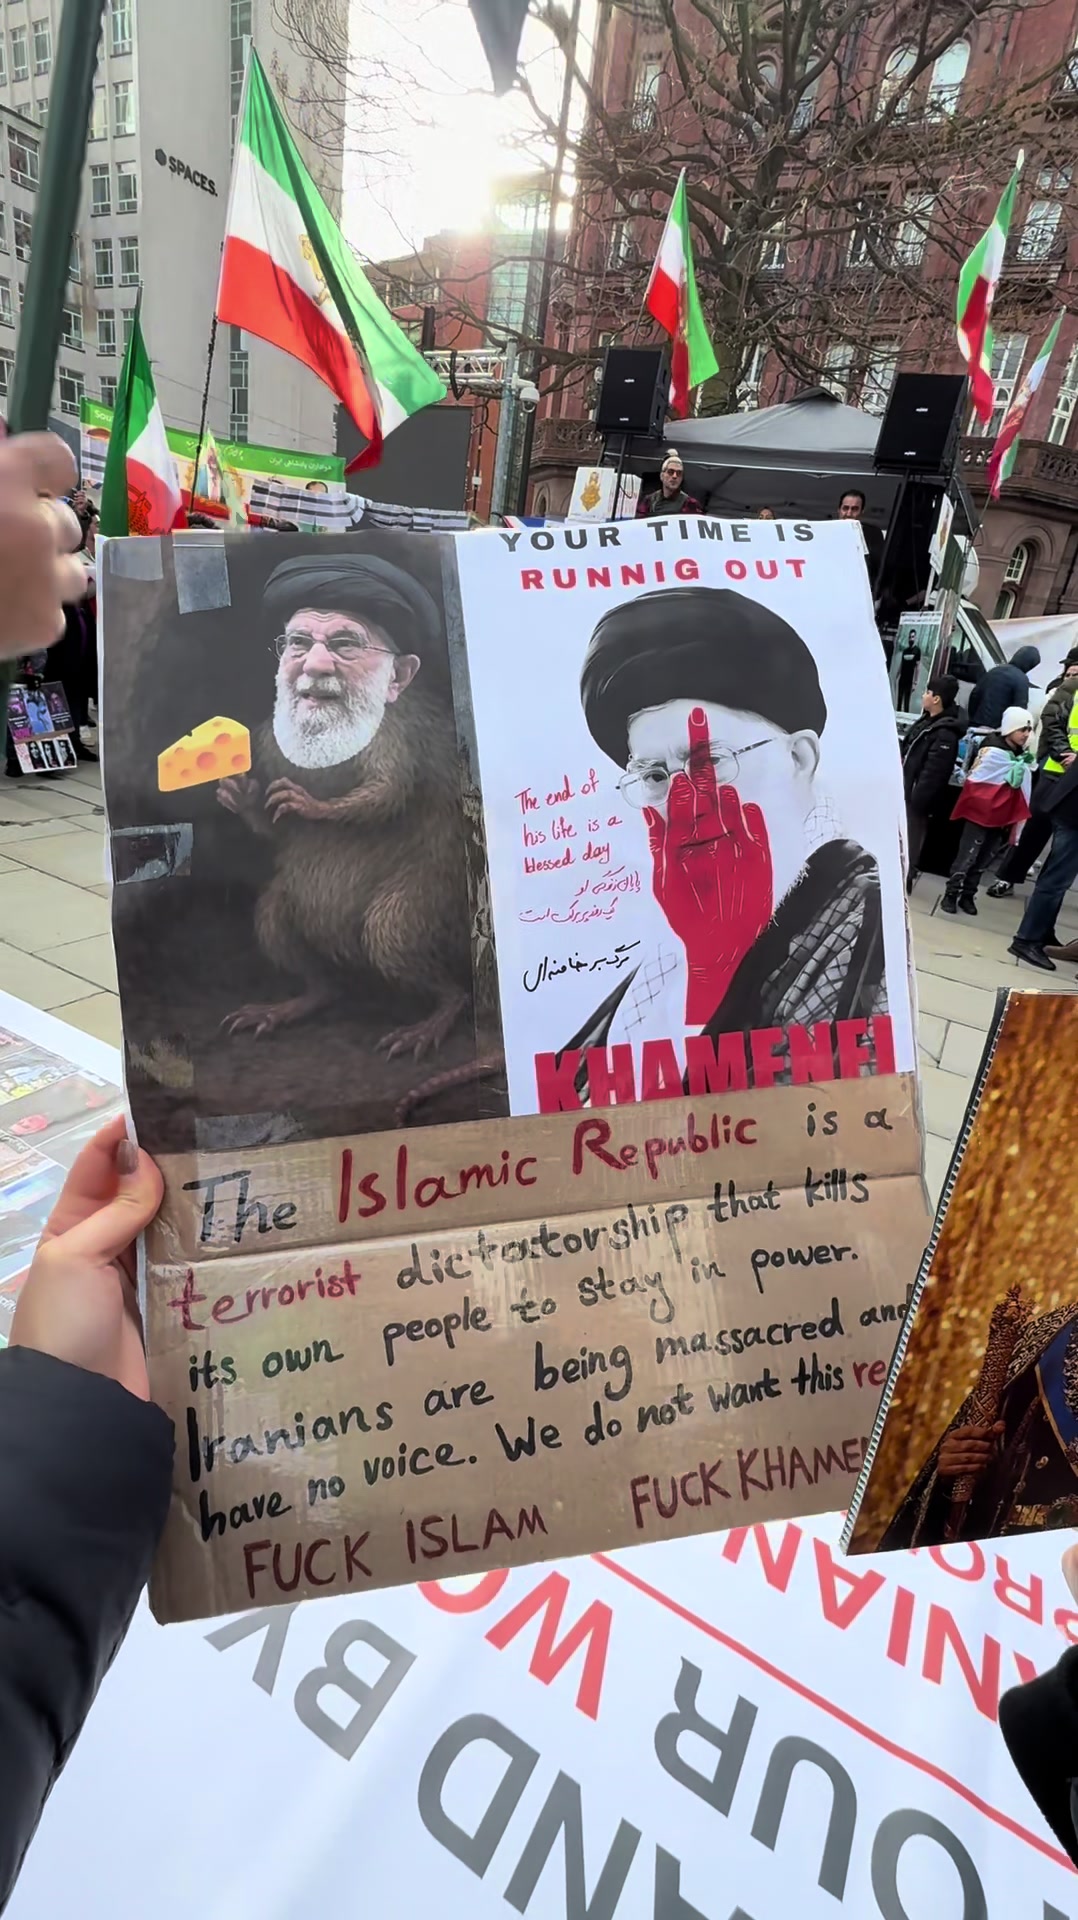 SPACES.
YOUR TIME IS
RUNNIG OUT
The end of
his life is a
blessed day
پایان زندگی او
یک روز پربرکت است
مرگ بر خامنه‌ای
KHAMENEI
The Islamic Republic is a
terrorist dictatorship that kills
its own people to stay in power.
Iranians are being massacred and
have no voice. We do not want this re
FUCK ISLAM FUCK KHAME
BY WO
AND OUR